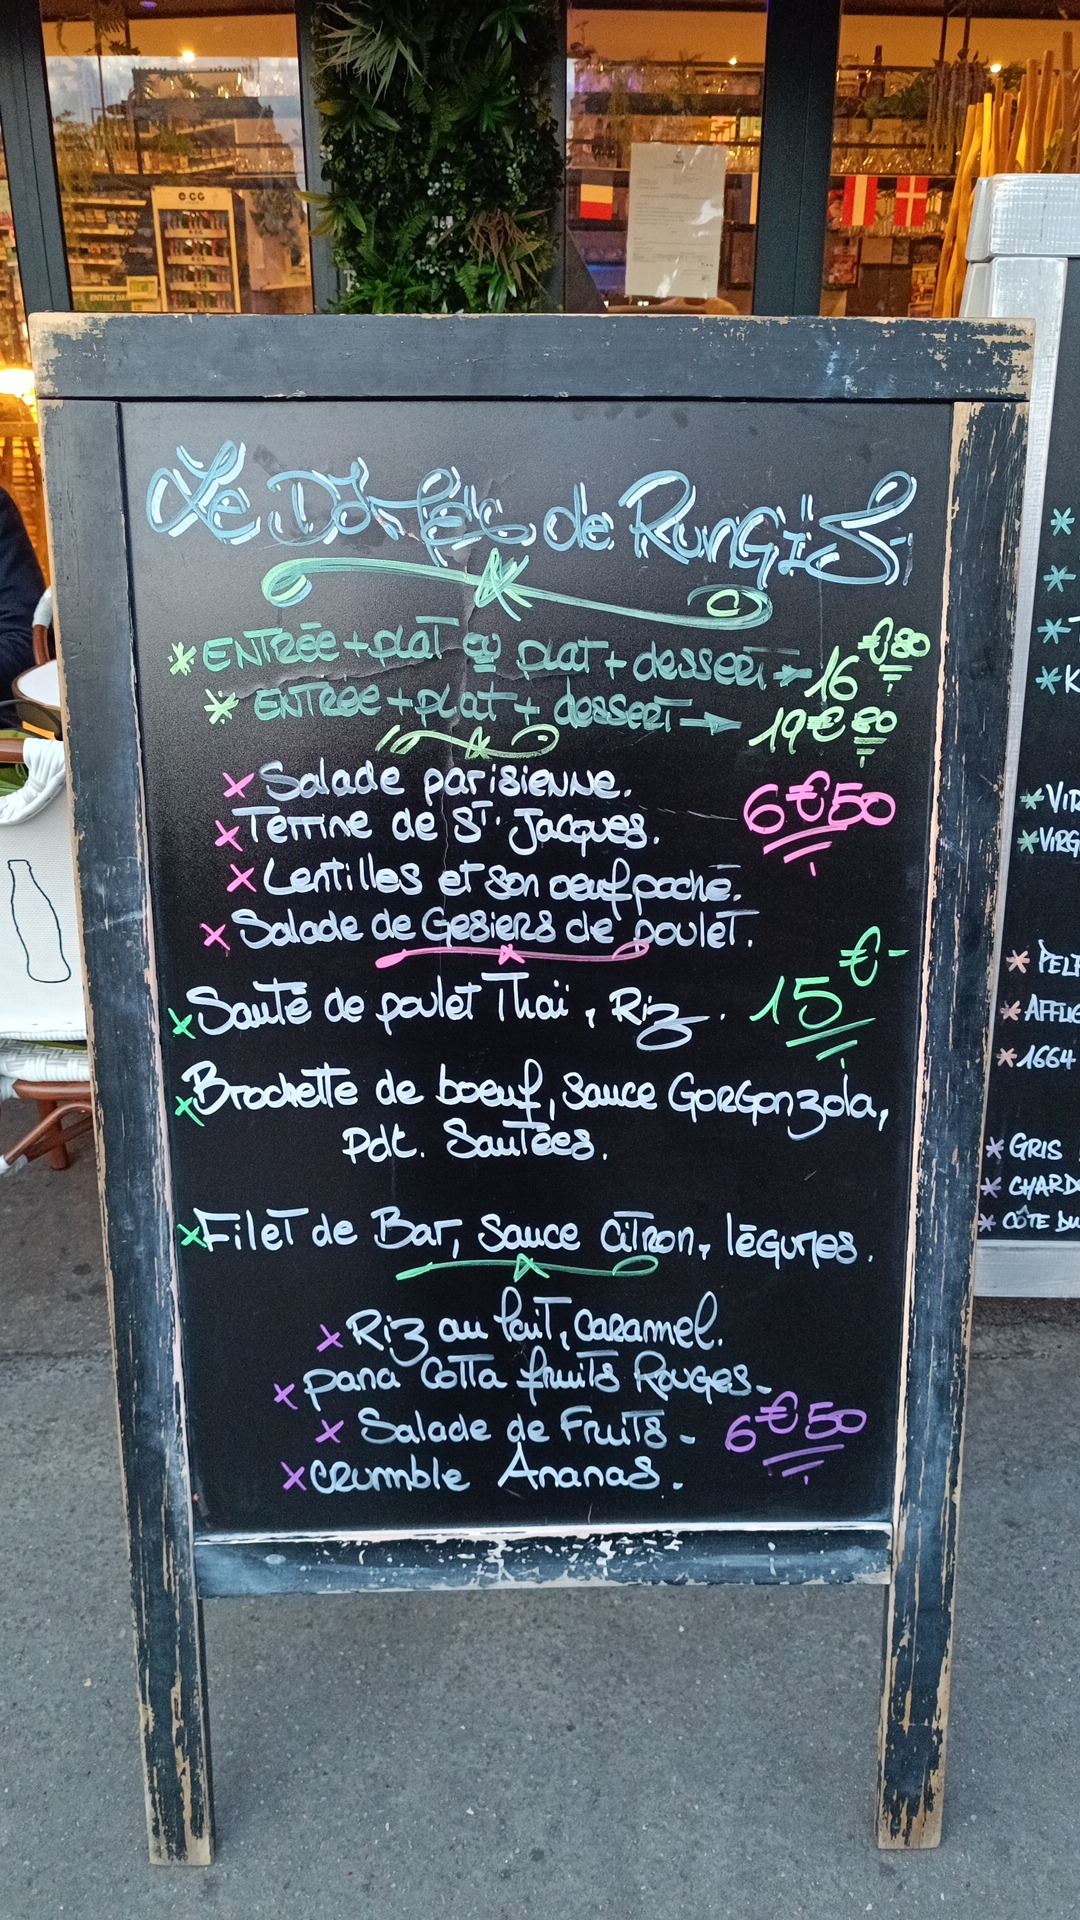 e CG
ENTREZ DA
Le Dômes de RUNGiS.
* ENTRÉE + plat ou plat + dessert → 16€80
* ENTREE + plat + dessert → 19€80
x Salade parisienne.
x Terrine de St. Jacques. 6€50
x Lentilles et son oeuf poché.
x Salade de Gesiers de poulet.
x Sauté de poulet Thaï, Riz. 15€-
x Brochette de boeuf, Sauce Gorgonzola,
Pdt. Sautées.
x Filet de Bar, Sauce Citron, légumes.
x Riz au lait, caramel.
x pana Cotta fruits Rouges-
x Salade de Fruits - 6€50
x Crumble Ananas.
*
*
*
* K
* VIR
* VIRG
* PELF
* AFFLIG
* 1664
* GRIS
* CHARD
* CÔTE DU